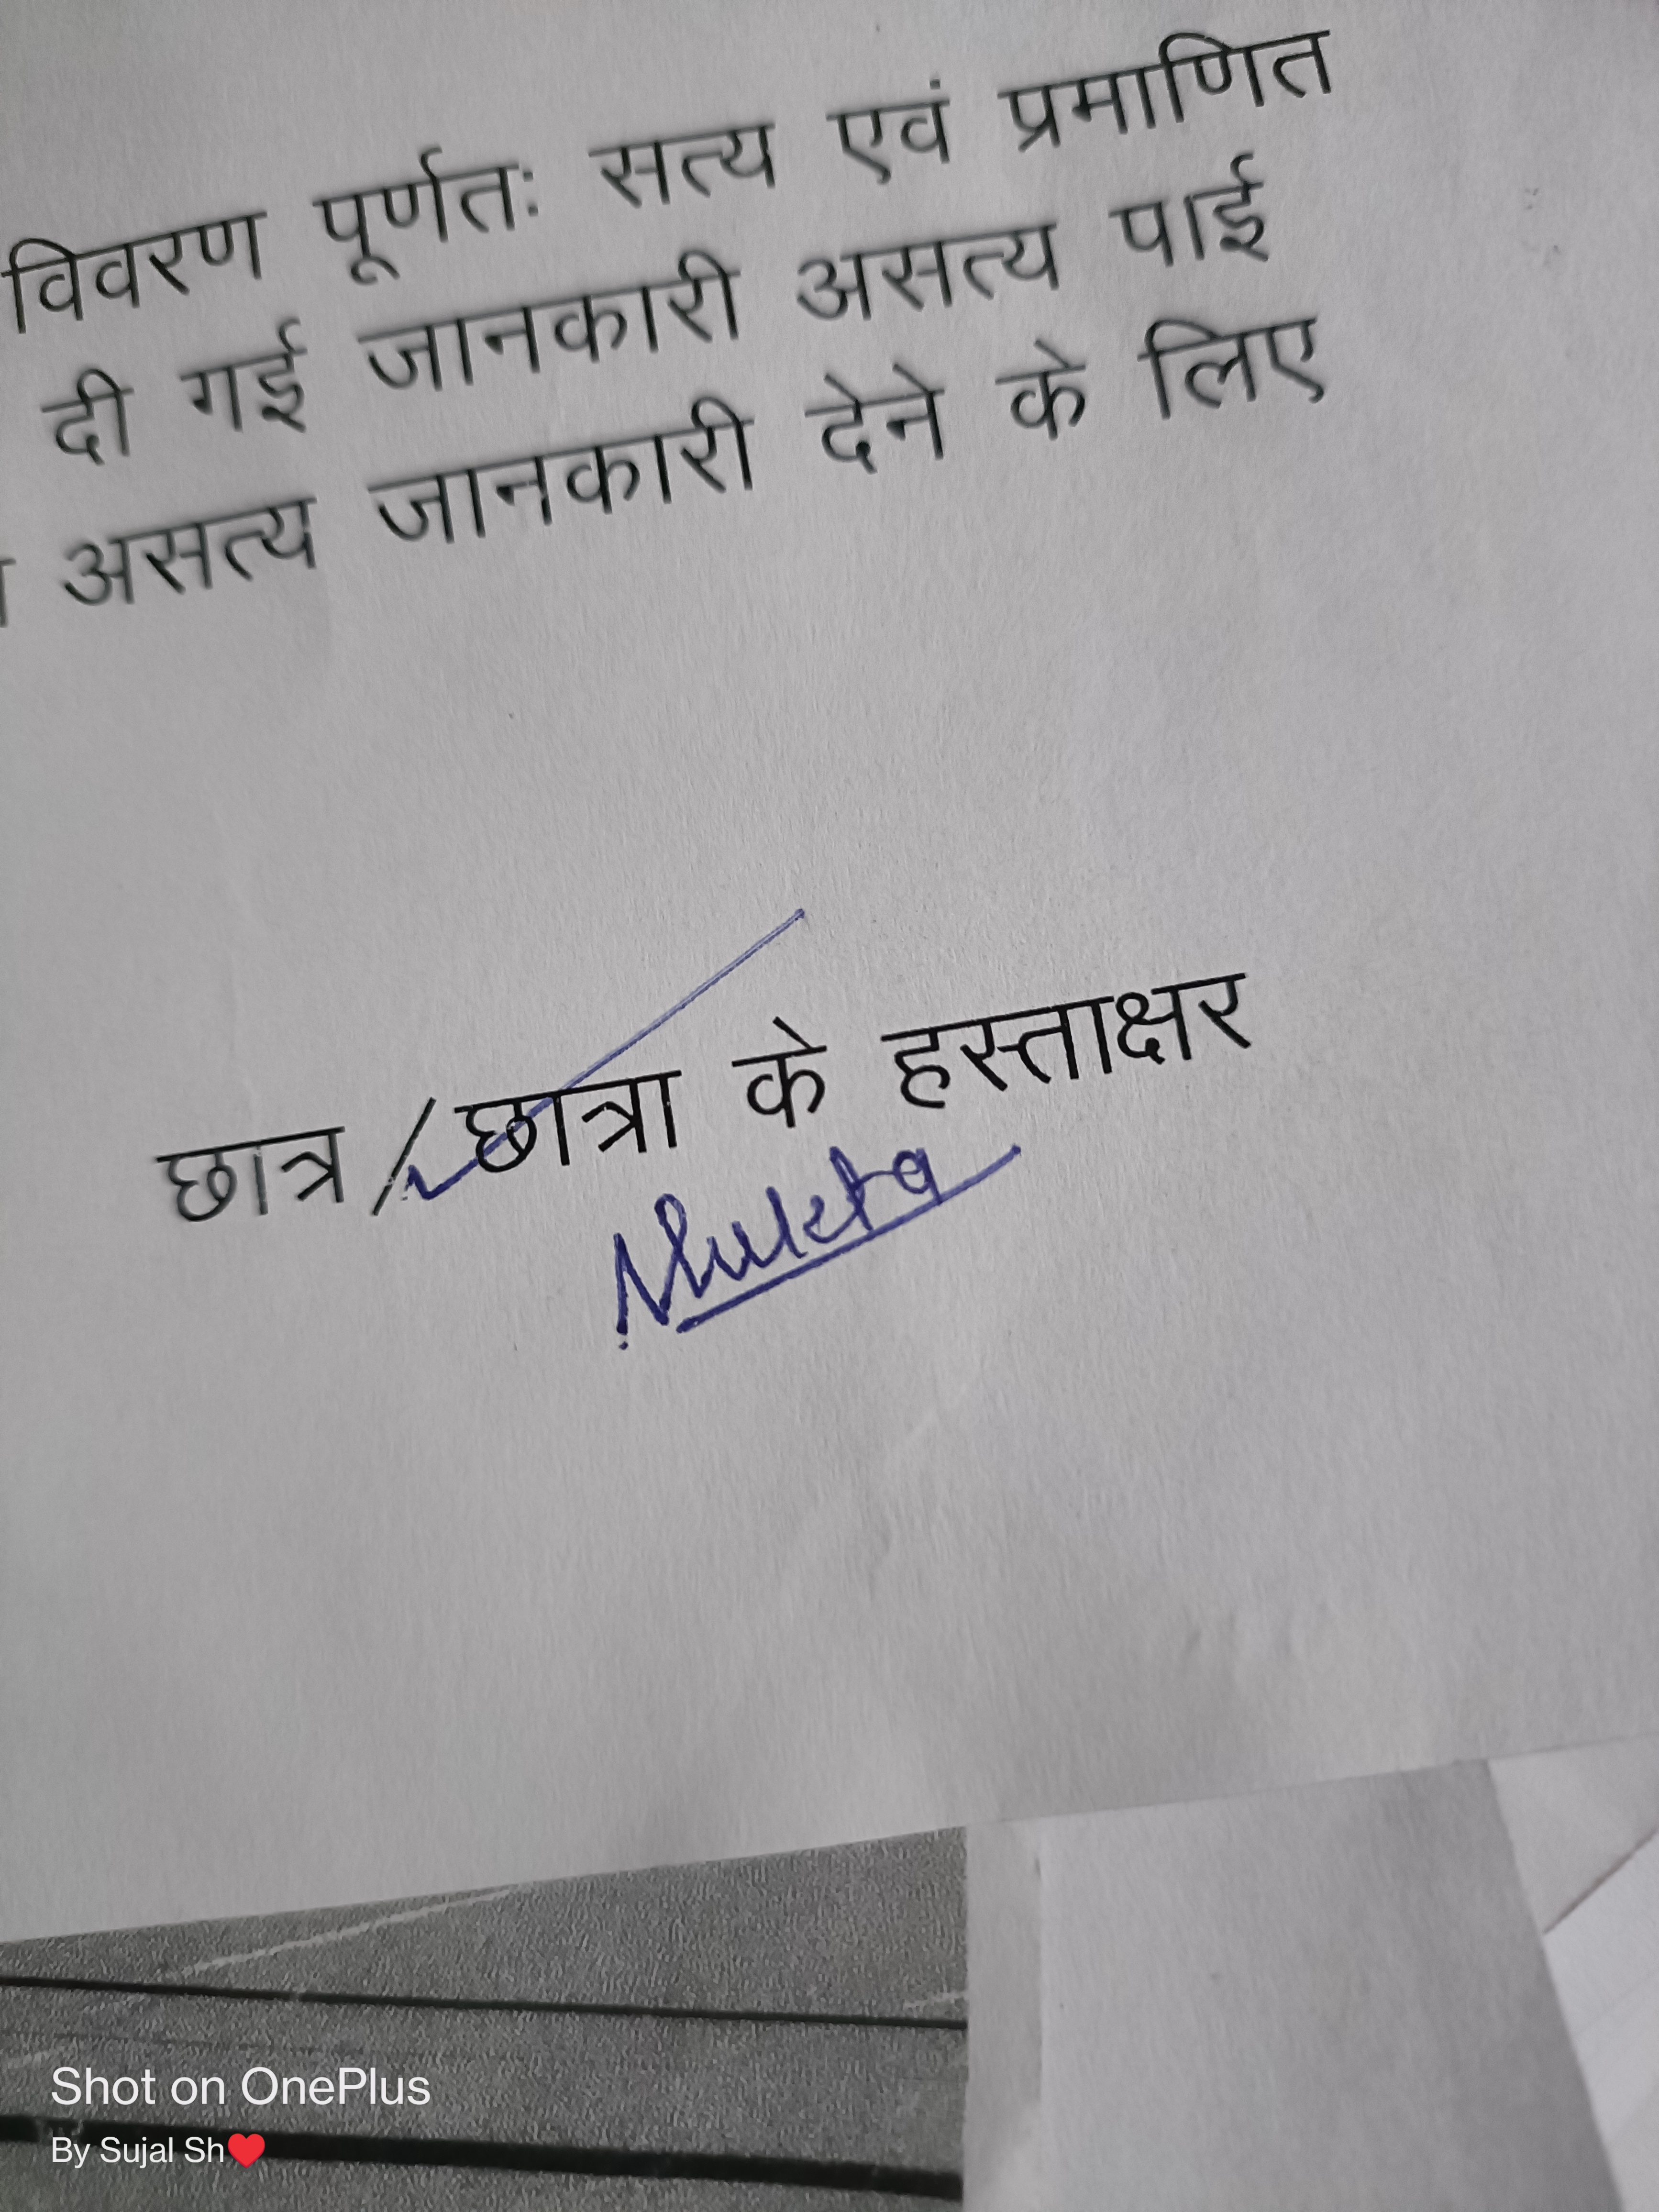 विवरण पूर्णतः सत्य एवं प्रमाणित
दी गई जानकारी असत्य पाई
असत्य जानकारी देने के लिए
छात्र / छात्रा के हस्ताक्षर
Mukta
Shot on OnePlus
By Sujal Sh❤️